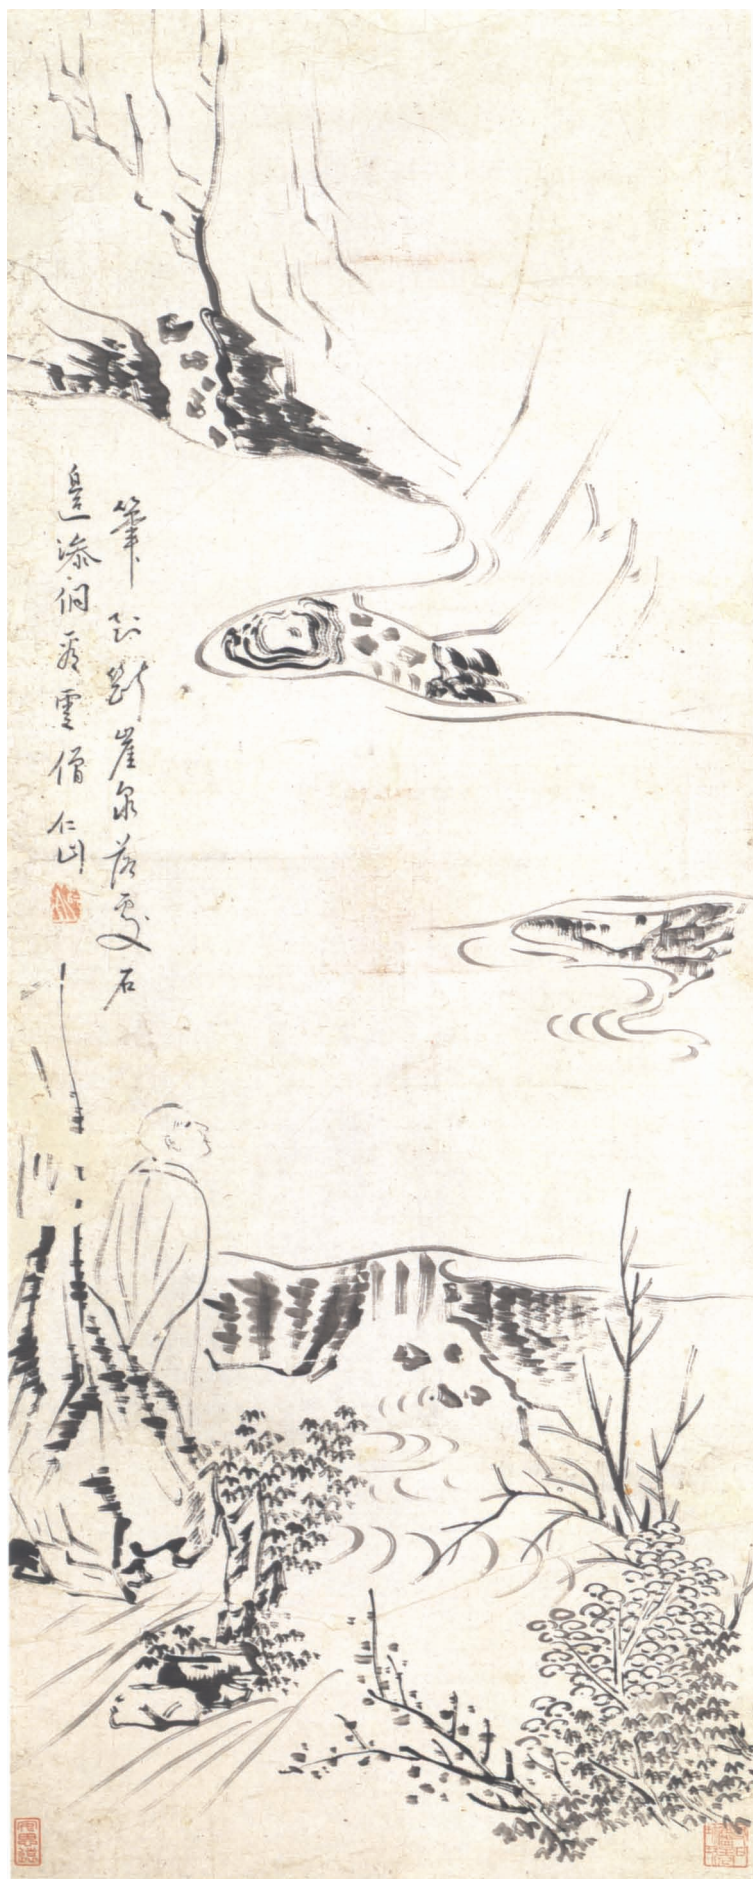 筆到斷崖泉落處石
邊添個看雲僧仁山